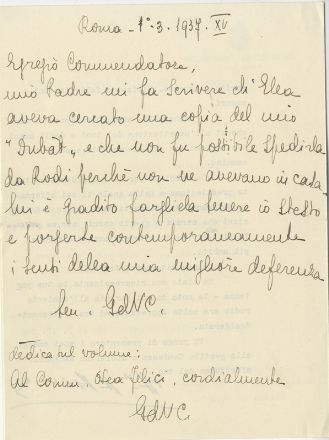 Roma - 1°-3. 1937. XV
Egregio Commendatore,
mio Padre mi fa scrivere ch'Ella
aveva cercato una copia del mio
"Dubàt" e che non fu possibile spedirla
da Rodi perché non ne avevano in casa
Mi è gradito fargliela tenere io stesso
e porgerle contemporaneamente
i sensi della mia migliore deferenza
GdNC.
dedica sul volume:
Al Comm. Felici, cordialmente
GdNC.